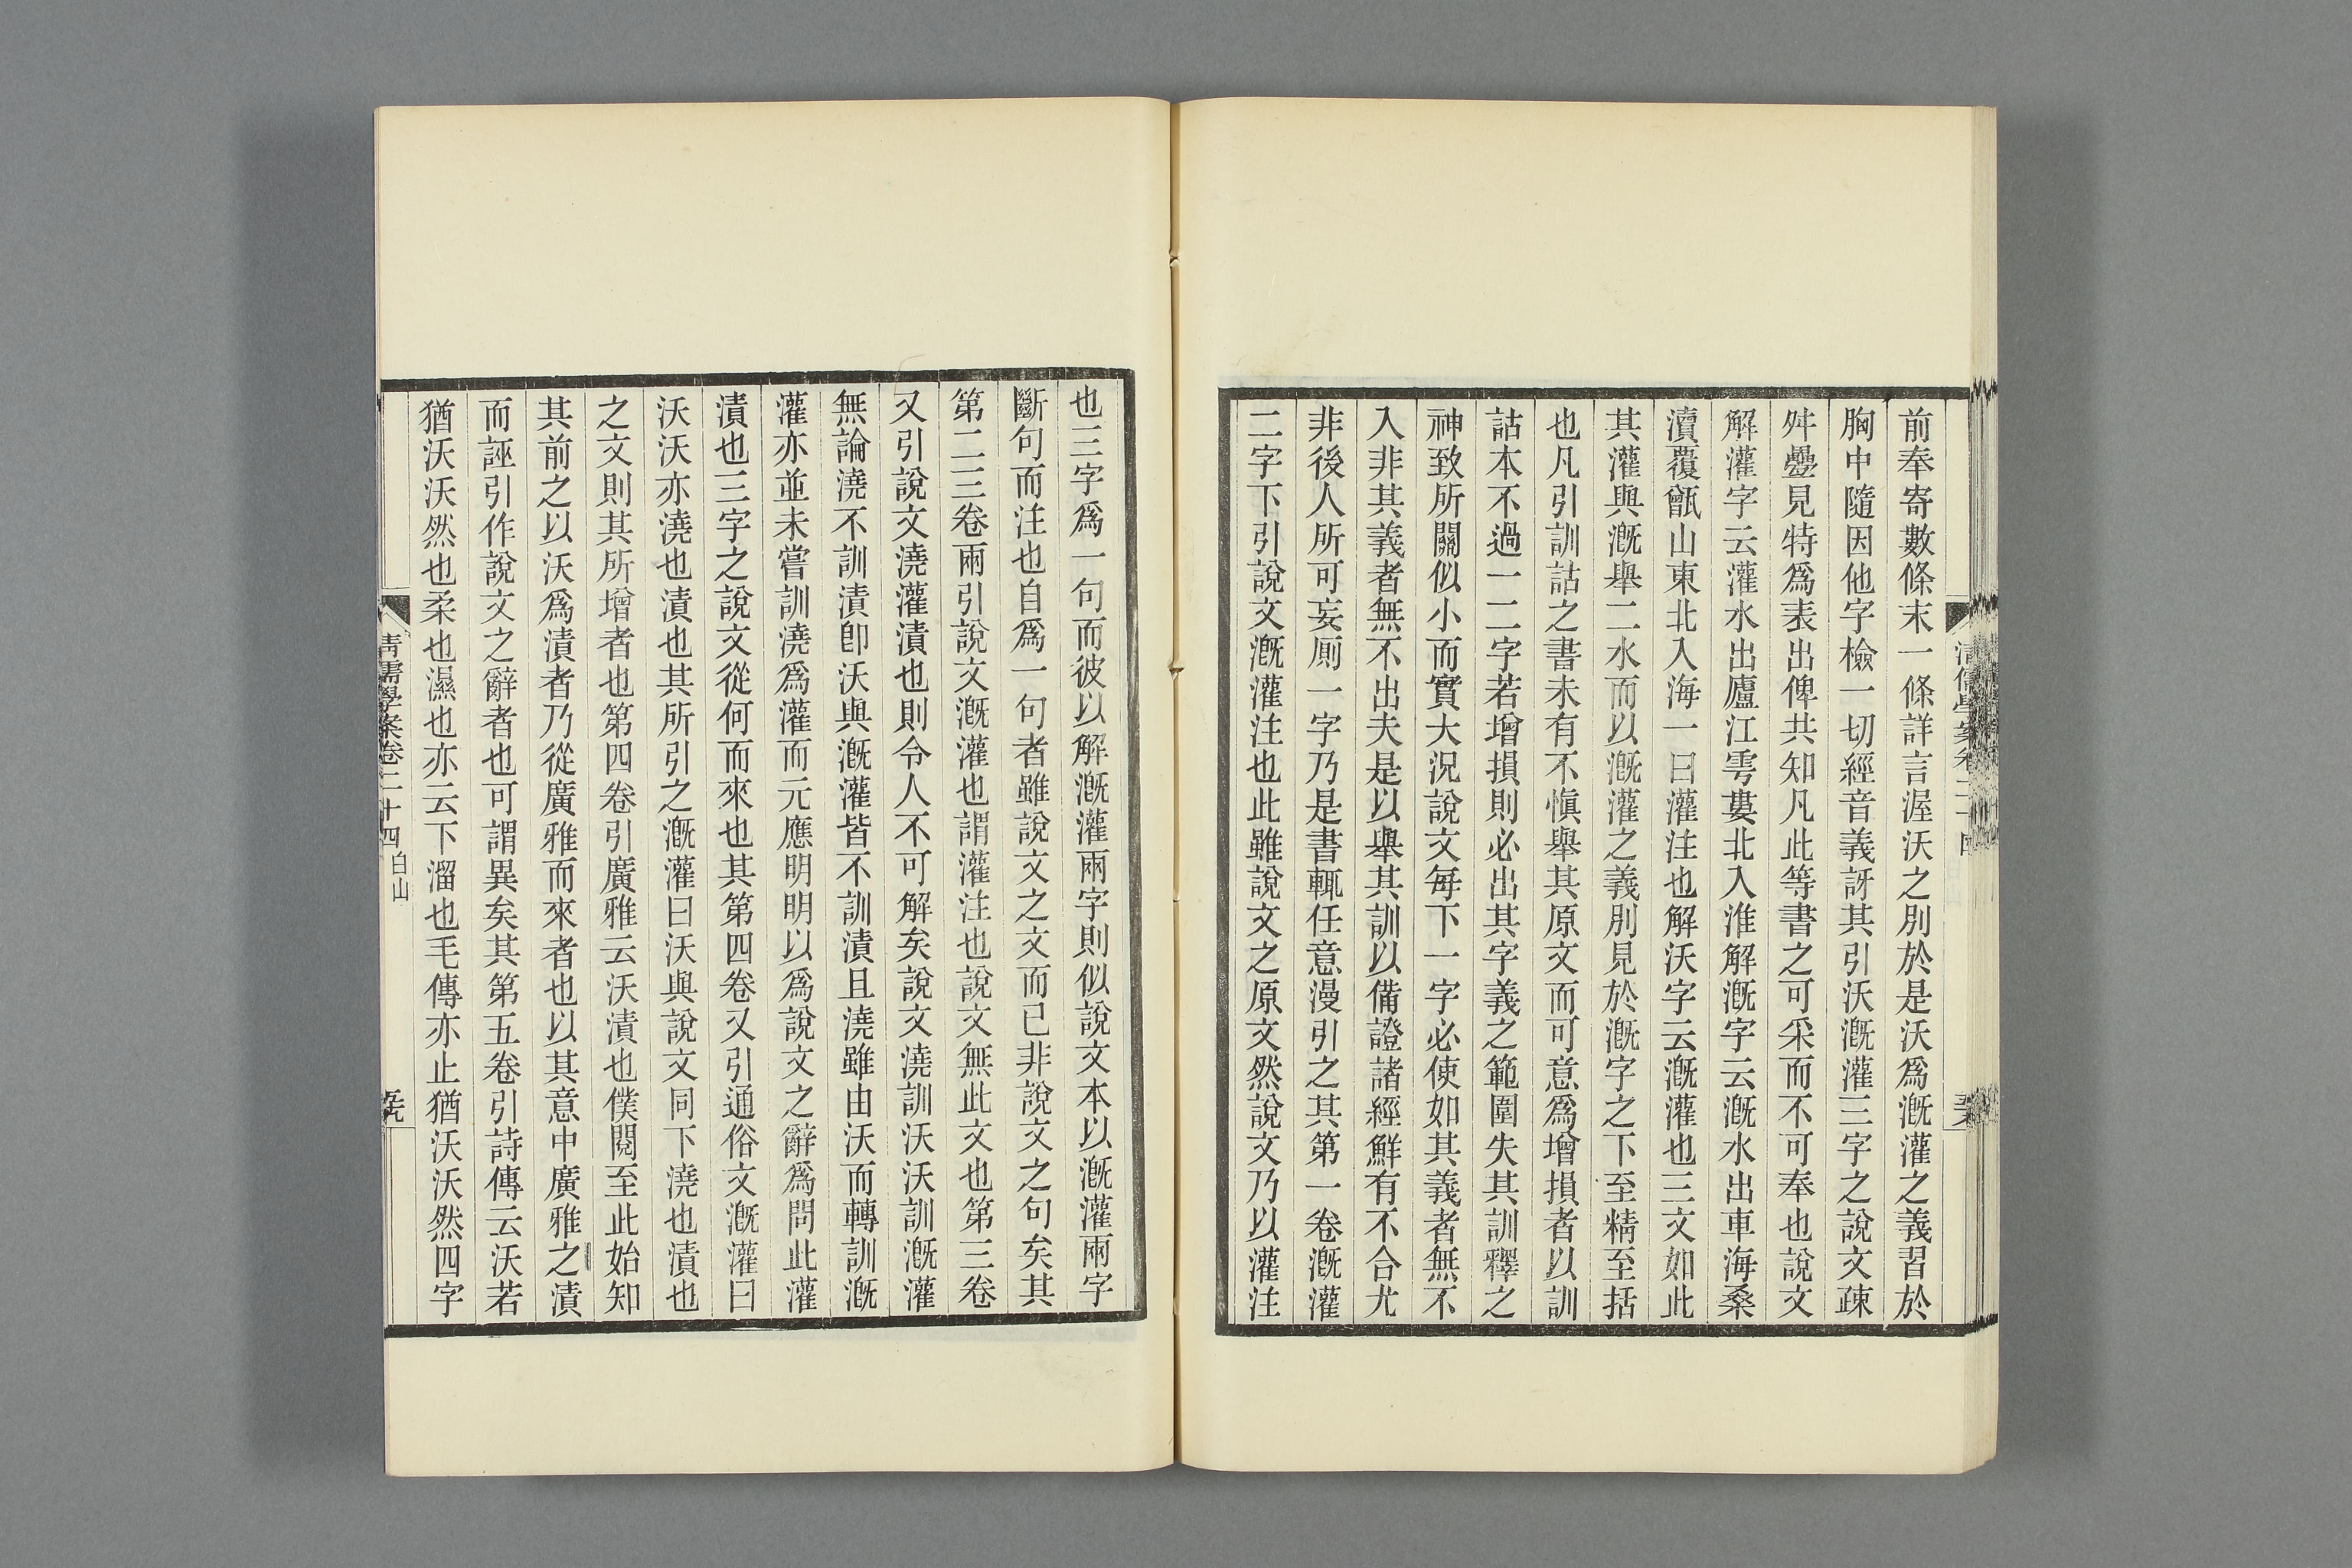 前奉寄數條末一條詳言渥沃之別於是沃爲漑灌之義習於
胸中隨因他字檢一切經音義訝其引沃漑灌三字之說文疎
舛疊見特爲表出俾共知凡此等書之可采而不可奉也說文
解灌字云灌水出廬江雩婁北入淮解漑字云漑水出車海桑
瀆覆甑山東北入海一曰灌注也解沃字云漑灌也三文如此
其灌與漑舉二水而以漑灌之義別見於漑字之下至精至括
也凡引訓詁之書未有不愼舉其原文而可意爲增損者以訓
詁本不過一二字若增損則必出其字義之範圍失其訓釋之
神致所關似小而實大況說文每下一字必使如其義者無不
入非其義者無不出夫是以舉其訓以備證諸經鮮有不合尤
非後人所可妄厠一字乃是書輒任意漫引之其第一卷漑灌
二字下引說文漑灌注也此雖說文之原文然說文乃以灌注
也三字爲一句而彼以解漑灌兩字則似說文本以漑灌兩字
斷句而注也自爲一句者雖說文之文而已非說文之句矣其
第二三卷兩引說文漑灌也謂灌注也說文無此文也第三卷
又引說文澆灌漬也則令人不可解矣說文澆訓沃沃訓漑灌
無論澆不訓漬卽沃與漑灌皆不訓漬且澆雖由沃而轉訓漑
灌亦並未嘗訓澆爲灌而元應明明以爲說文之辭爲問此灌
漬也三字之說文從何而來也其第四卷又引通俗文漑灌曰
沃沃亦澆也漬也其所引之漑灌曰沃與說文同下澆也漬也
之文則其所增者也第四卷引廣雅云沃漬也僕閱至此始知
其前之以沃爲漬者乃從廣雅而來者也以其意中廣雅之漬
而誣引作說文之辭者也可謂異矣其第五卷引詩傳云沃若
猶沃沃然也柔也濕也亦云下溜也毛傳亦止猶沃沃然四字
清儒學案卷二十四 白山